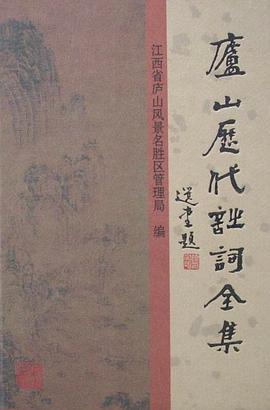 廬山歷代詩詞全集
選堂題
江西省庐山风景名胜区管理局 编